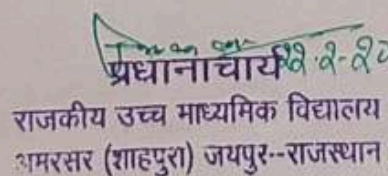 प्रधानाचार्य
राजकीय उच्च माध्यमिक विद्यालय
अमरसर (शाहपुरा) जयपुर--राजस्थान